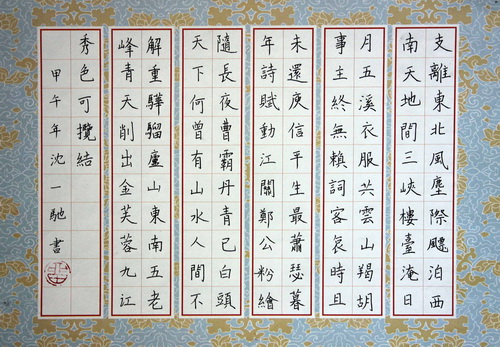 支離東北風塵際飄泊西
南天地間三峽樓臺淹日
月五溪衣服共雲山羯胡
事主終無賴詞客哀時且
未還庾信平生最蕭瑟暮
年詩賦動江關鄭公粉繪
隨長夜曹霸丹青已白頭
天下何曾有山水人間不
解重驊騮廬山東南五老
峰青天削出金芙蓉九江
秀色可攬結
甲午年沈一馳書